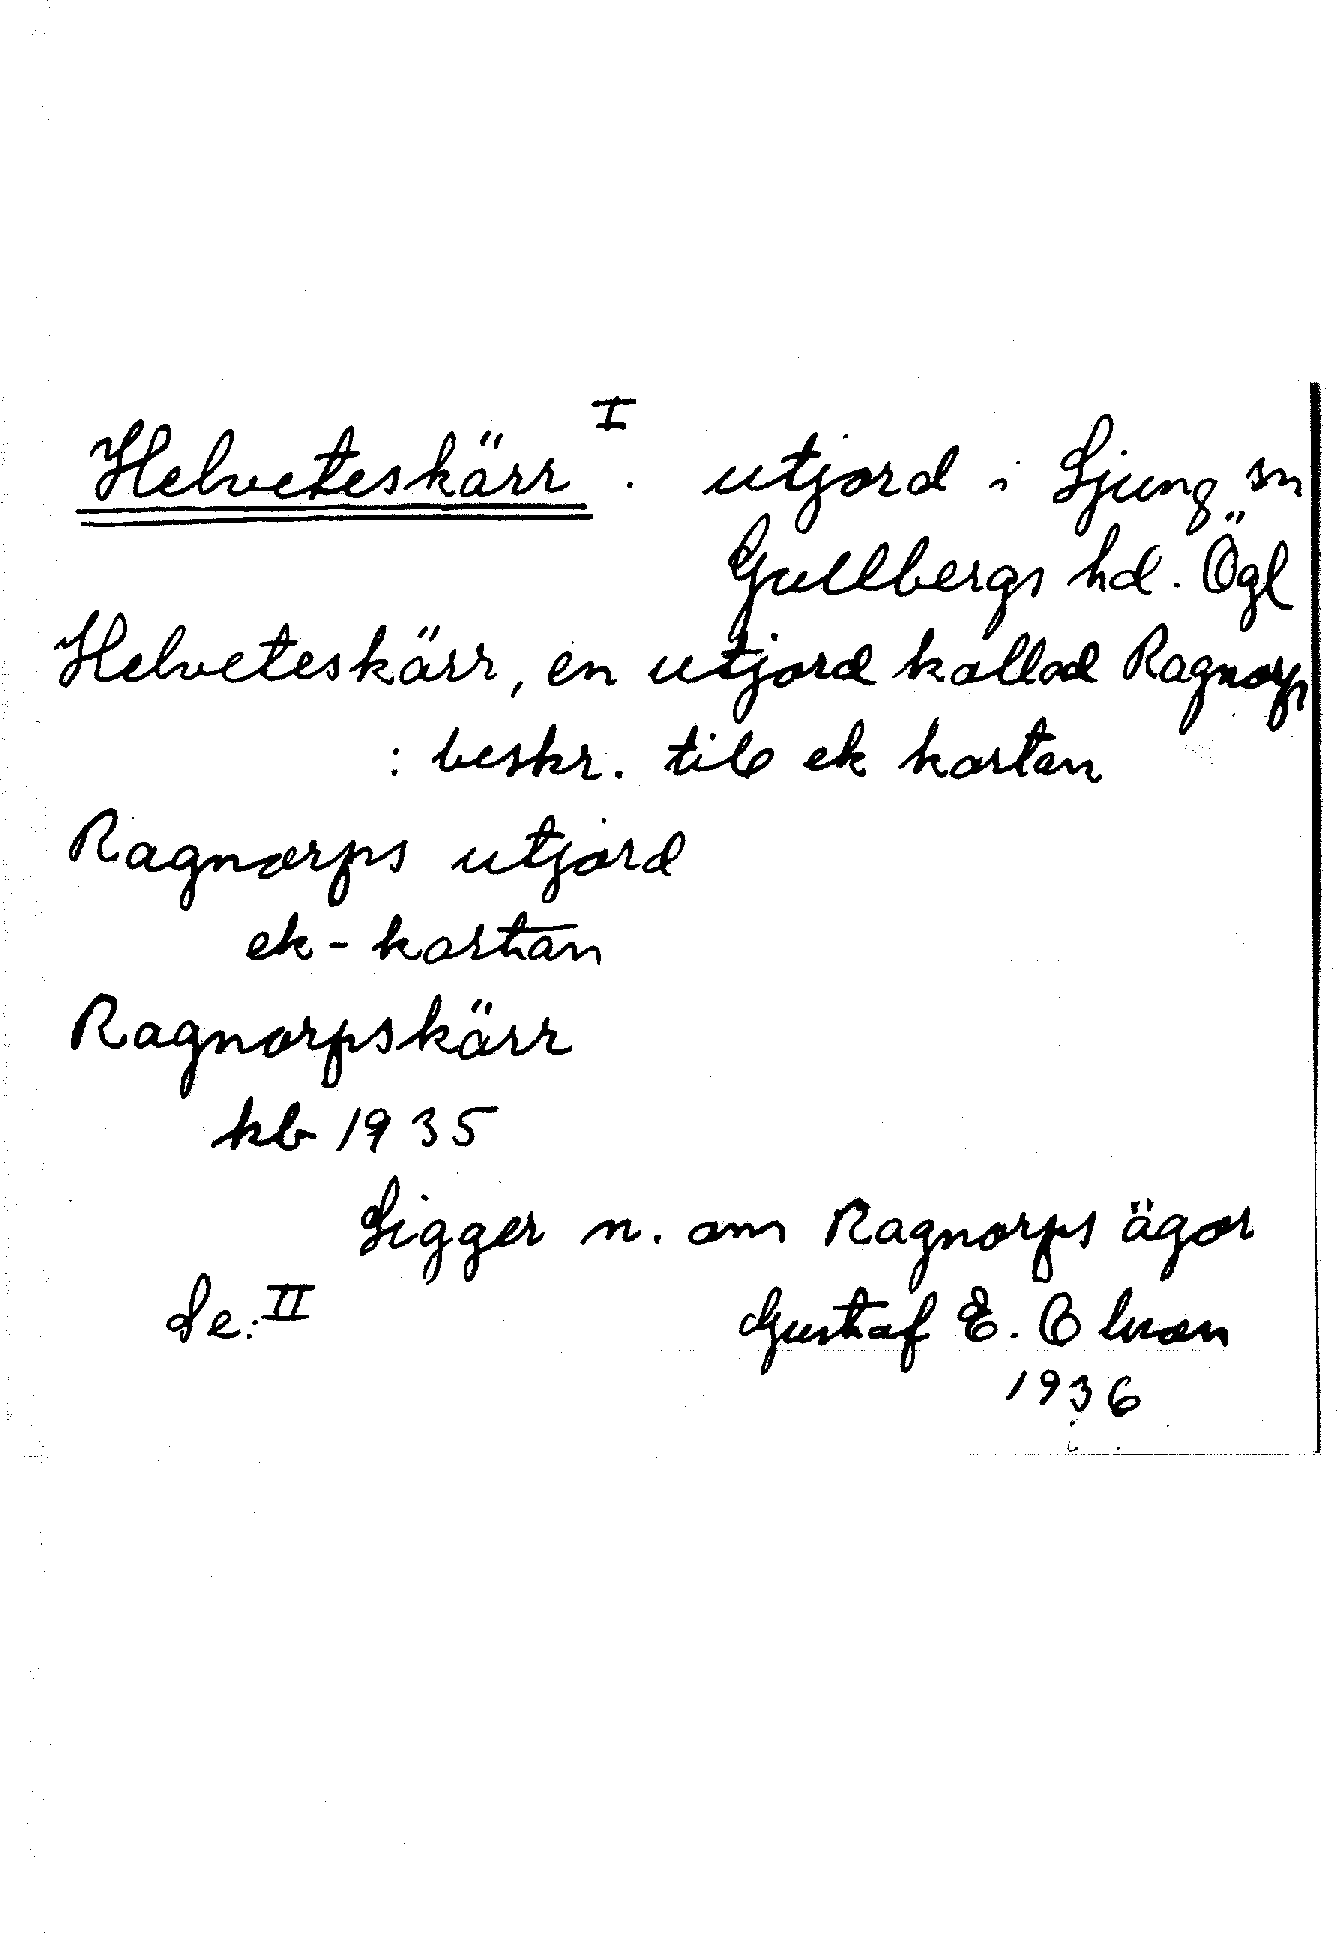 Helveteskärr I. utjord i Ljung sn
Gullbergs hd. Ögl
Helveteskärr, en utjord kallad Ragnorp
: beskr. till ek kartan
Ragnorps utjord
ek-kartan
Ragnorpskärr
kb 1935
Ligger n. om Ragnorps ägor
Se: II Gustaf E. Olsson
1936